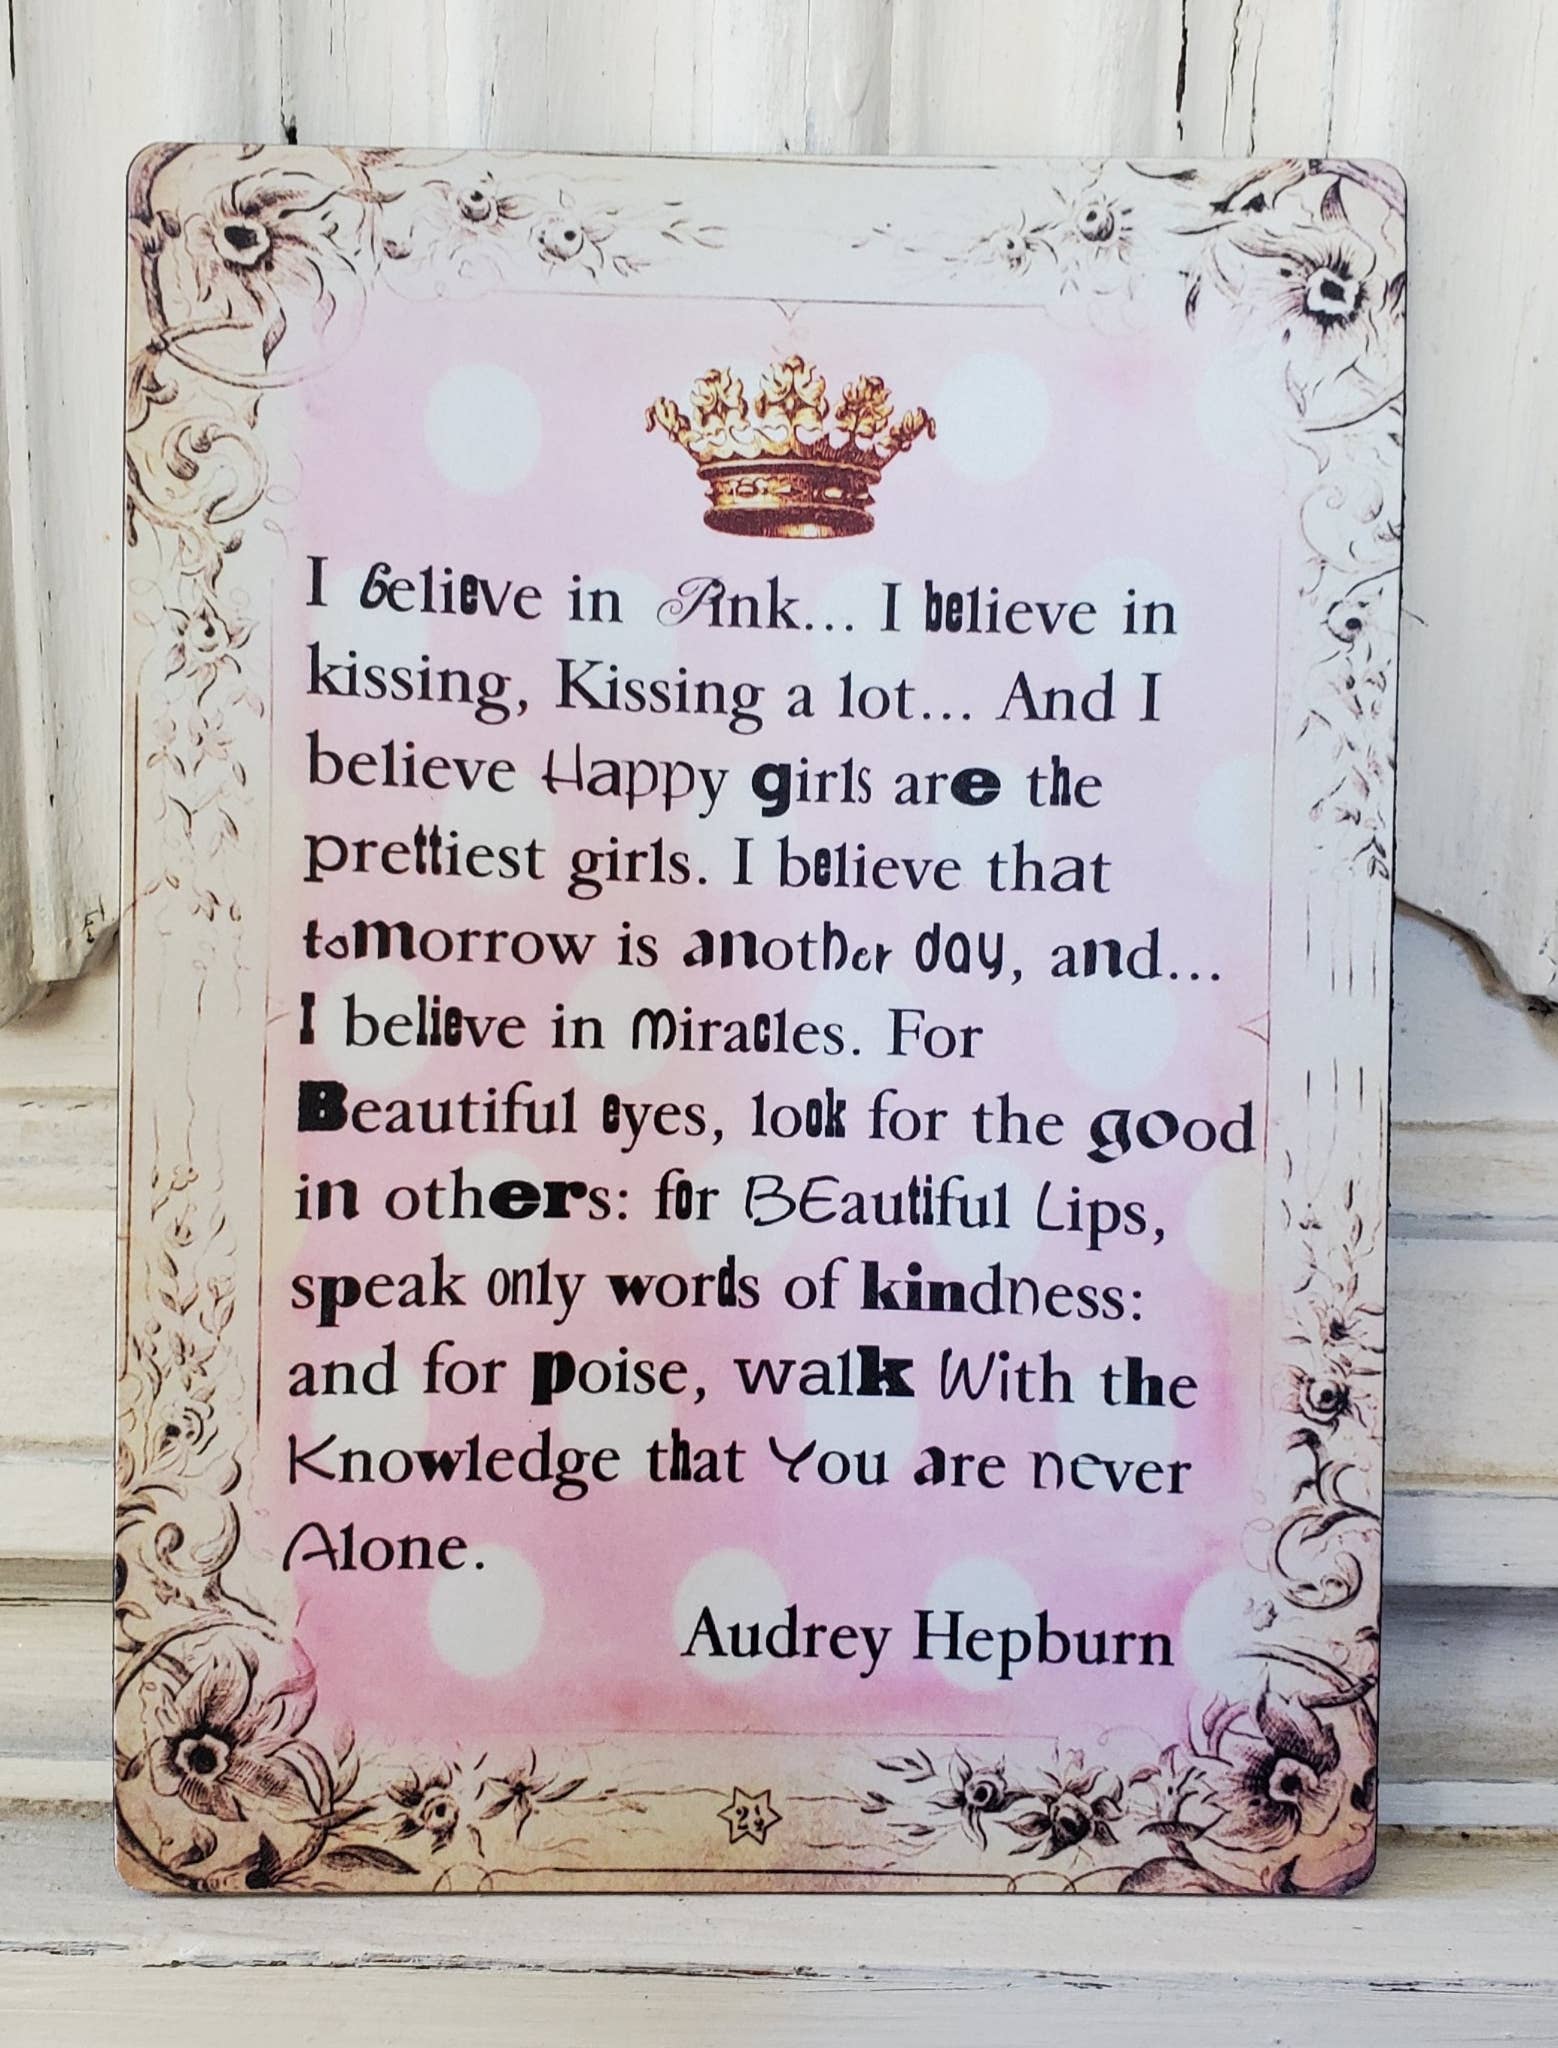 I believe in Pink... I believe in
kissing, Kissing a lot... And I
believe Happy girls are the
prettiest girls. I believe that
tomorrow is another day, and...
I believe in miracles. For
Beautiful eyes, look for the good
in others: for BEautiful Lips,
speak only words of kindness:
and for poise, walk With the
Knowledge that You are never
Alone.
Audrey Hepburn